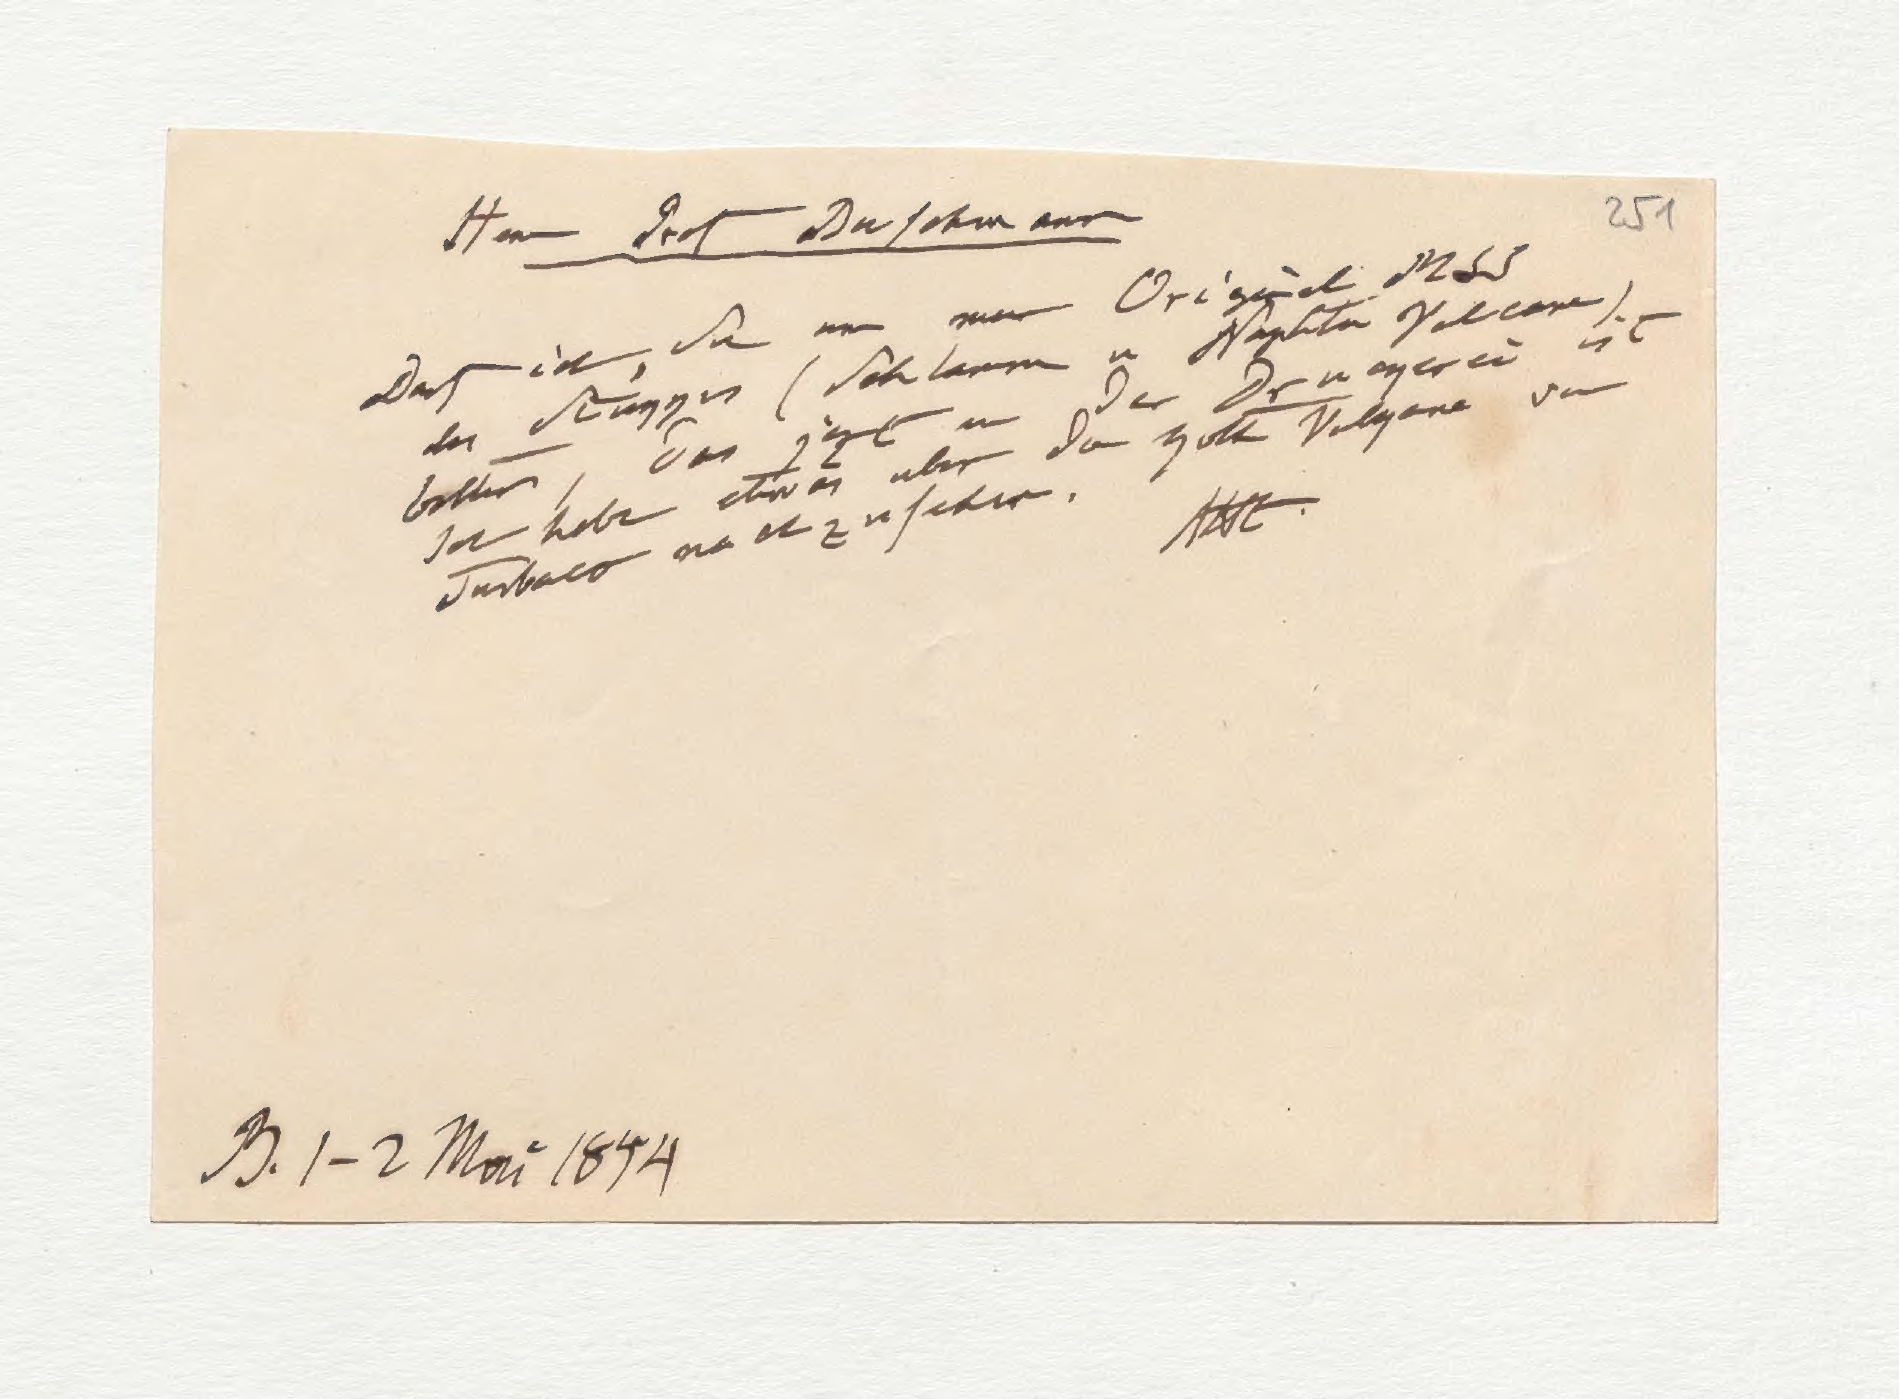 251
Herrn Prof Buschmann
Darf ich, Sie um mein Original MSS
des Stückes (Schlamm u Naphta Vulcane)
bitten, das jezt in der Druckerei ist
Ich habe etwas über die Vulkane von
Turbaco nachzusehen.
AHt.
B. 1-2 Mai 1854